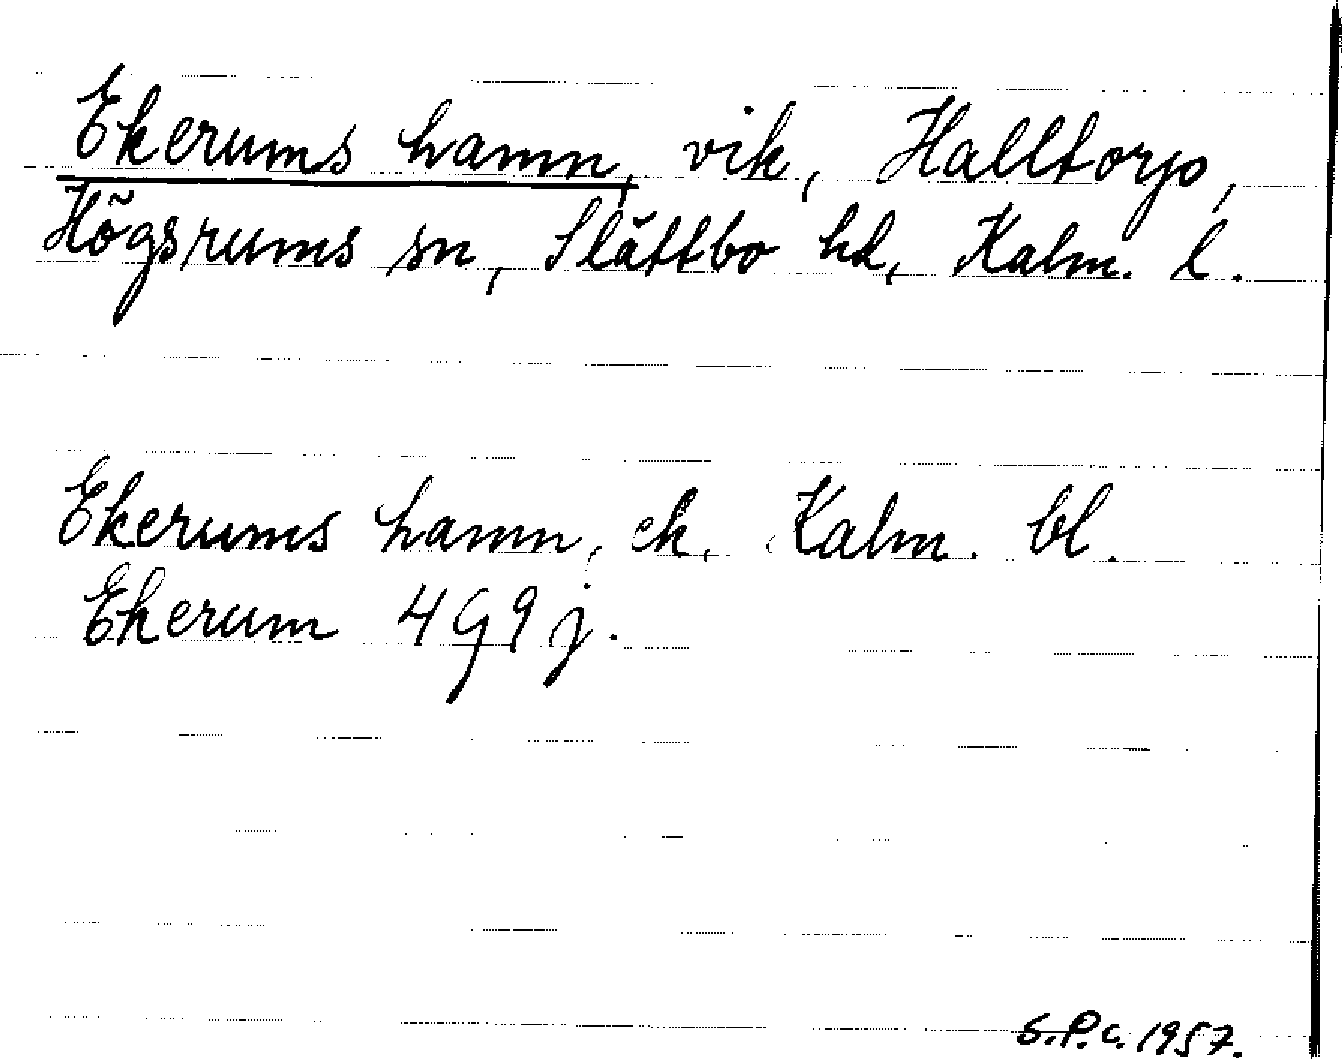 Ekerums hamn, vik, Halltorp,
Högsrums sn, Slättbo hd, Kalm. l.
Ekerums hamn, ek, Kalm. bl.
Ekerum 4G9j.
S.P.C. 1957.